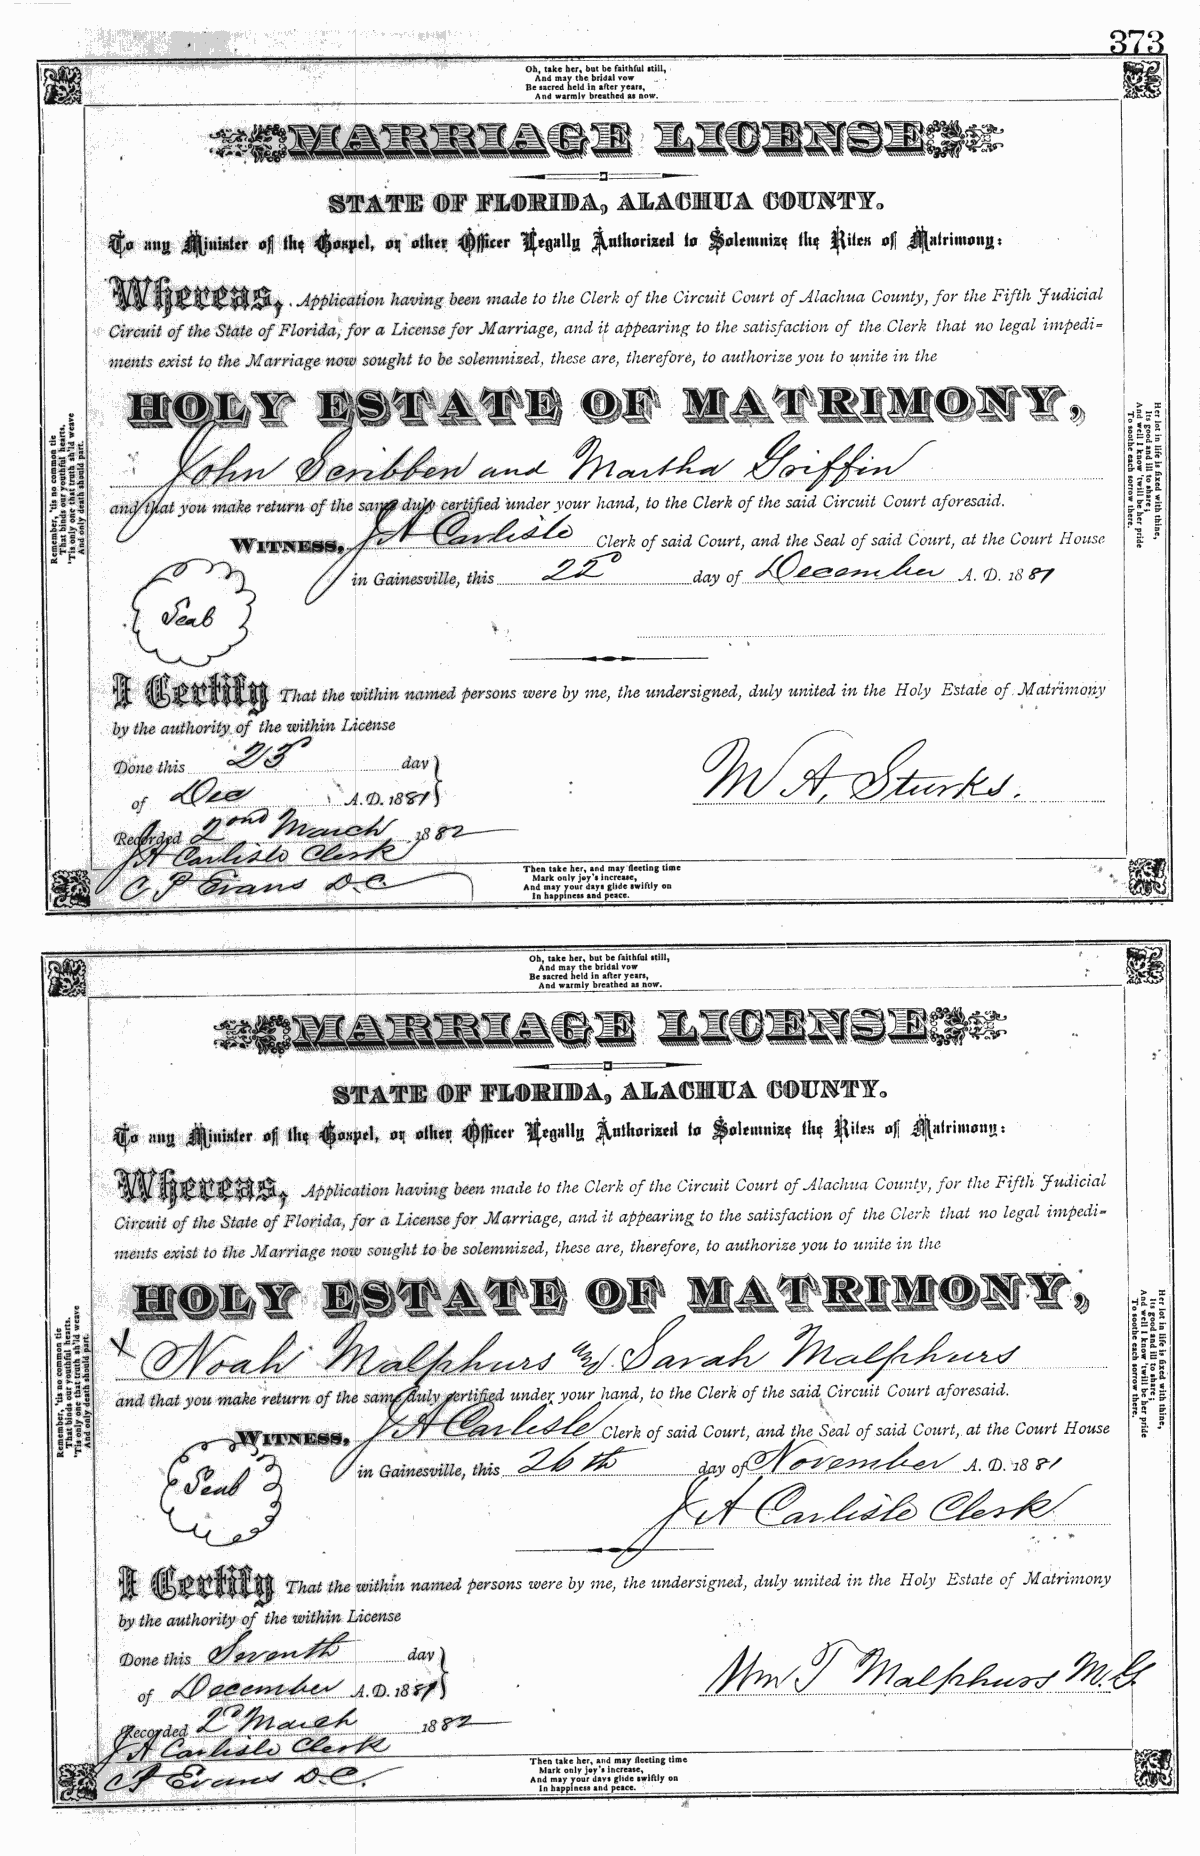 373
Oh, take her, but be faithful still,
And may the bridal vow
Be sacred held in after years,
And warmly breathed as now.
MARRIAGE LICENSE
STATE OF FLORIDA, ALACHUA COUNTY.
To any Minister of the Gospel, or other Officer Legally Authorized to Solemnize the Rites of Matrimony:
Whereas, Application having been made to the Clerk of the Circuit Court of Alachua County, for the Fifth Judicial
Circuit of the State of Florida, for a License for Marriage, and it appearing to the satisfaction of the Clerk that no legal impedi-
ments exist to the Marriage now sought to be solemnized, these are, therefore, to authorize you to unite in the
HOLY ESTATE OF MATRIMONY,
John Scribben and Martha Griffin
and that you make return of the same duly certified under your hand, to the Clerk of the said Circuit Court aforesaid.
WITNESS, J A Carlisle Clerk of said Court, and the Seal of said Court, at the Court House
in Gainesville, this 22d day of December A. D. 1881
Seal
I Certify That the within named persons were by me, the undersigned, duly united in the Holy Estate of Matrimony
by the authority of the within License
Done this 25 day
of Dec A. D. 1881
M A, Sturks.
Recorded 2nd March 1882
J A Carlisle Clerk
C P Evans D.C.
Remember, 'tis no common tie
That binds our youthful hearts.
'Tis only one that truth sh'ld weave
And only death should part.
Her lot in life is fixed with thine,
Its good and ill to share;
And well I know 'twill be her pride
To soothe each sorrow there.
Then take her, and may fleeting time
Mark only joy's increase,
And may your days glide swiftly on
In happiness and peace.
Oh, take her, but be faithful still,
And may the bridal vow
Be sacred held in after years,
And warmly breathed as now.
MARRIAGE LICENSE
STATE OF FLORIDA, ALACHUA COUNTY.
To any Minister of the Gospel, or other Officer Legally Authorized to Solemnize the Rites of Matrimony:
Whereas, Application having been made to the Clerk of the Circuit Court of Alachua County, for the Fifth Judicial
Circuit of the State of Florida, for a License for Marriage, and it appearing to the satisfaction of the Clerk that no legal impedi-
ments exist to the Marriage now sought to be solemnized, these are, therefore, to authorize you to unite in the
HOLY ESTATE OF MATRIMONY,
X Noah Malphurs and Sarah Malphurs
and that you make return of the same duly certified under your hand, to the Clerk of the said Circuit Court aforesaid.
WITNESS, J A Carlisle Clerk of said Court, and the Seal of said Court, at the Court House
in Gainesville, this 26th day of November A. D. 1881
Seal
J A Carlisle Clerk
I Certify That the within named persons were by me, the undersigned, duly united in the Holy Estate of Matrimony
by the authority of the within License
Done this Seventh day
of December A. D. 1881
Wm T Malphurs M.G.
Recorded 2d March 1882
J A Carlisle Clerk
C P Evans D.C.
Remember, 'tis no common tie
That binds our youthful hearts.
'Tis only one that truth sh'ld weave
And only death should part.
Her lot in life is fixed with thine,
Its good and ill to share;
And well I know 'twill be her pride
To soothe each sorrow there.
Then take her, and may fleeting time
Mark only joy's increase,
And may your days glide swiftly on
In happiness and peace.